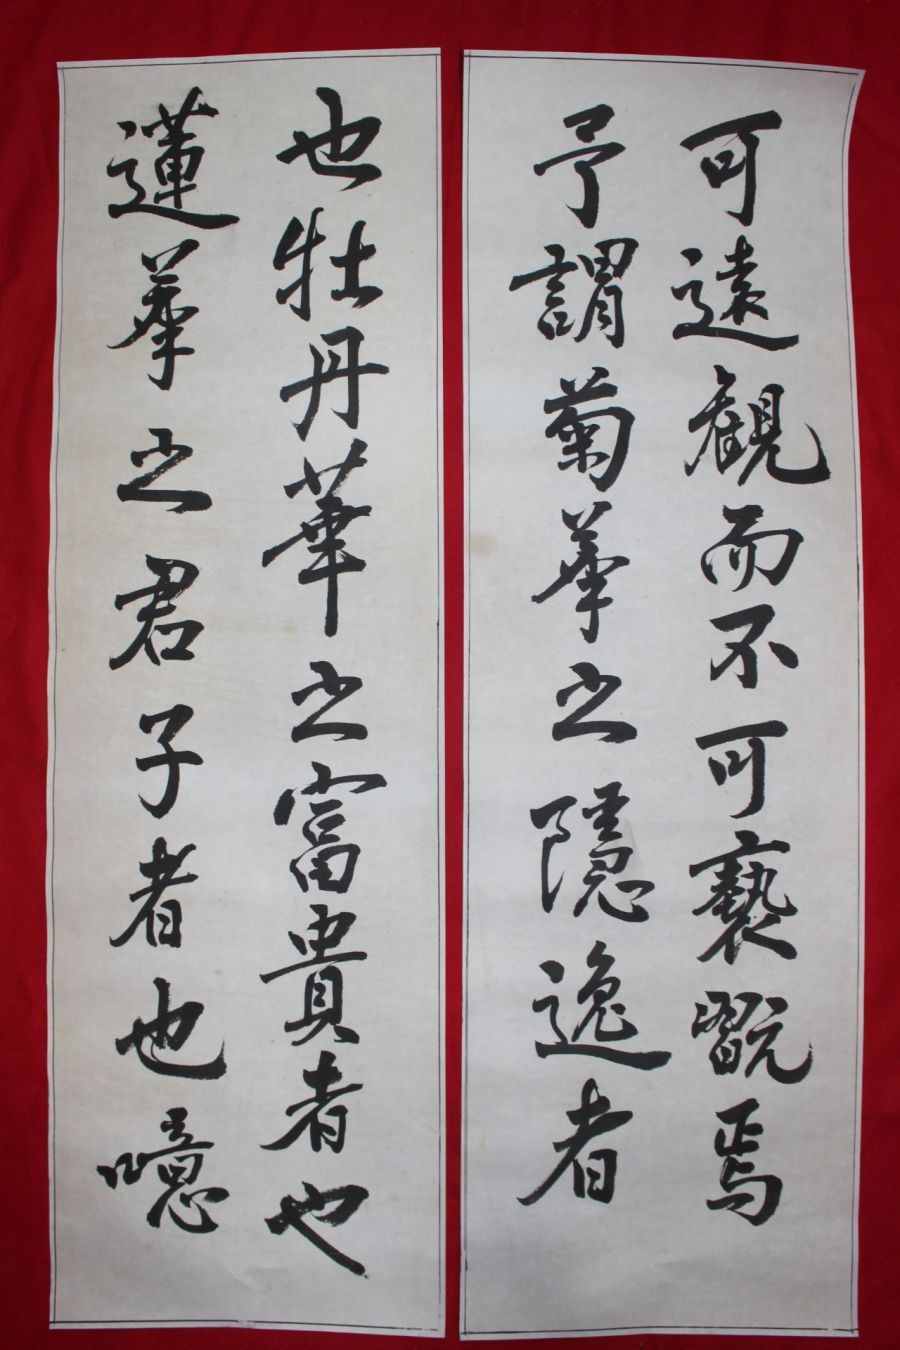 可遠觀而不可褻翫焉
予謂菊華之隱逸者
也牡丹華之富貴者也
蓮華之君子者也噫